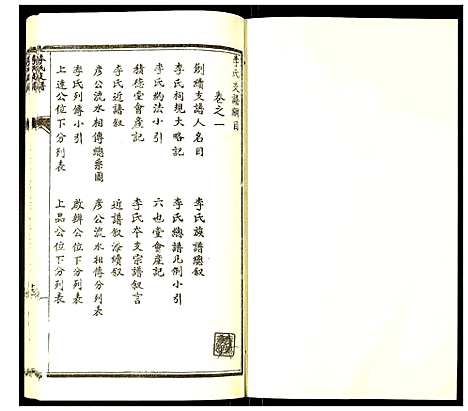 李氏支譜綱目
卷之一
創續支譜人名目
李氏族譜總叙
李氏祠規大略記
李氏總譜凡例小引
李氏納法小引
六也堂會產記
積德堂會產記
李氏本支宗譜叙言
李氏近譜叙
近譜叙添續叙
彥公流水相傳總系圖
彥公流水相傳分列表
李氏列傳小引
啟辨公位下分列表
上達公位下分列表
上品公位下分列表